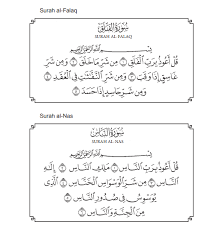 Surah al-Falaq
سُورَةُ الْفَلَقِ
SURAH AL-FALAQ
بِسْمِ اللَّهِ الرَّحْمَٰنِ الرَّحِيمِ
قُلْ أَعُوذُ بِرَبِّ الْفَلَقِ ۝ مِن شَرِّ مَا خَلَقَ ۝ وَمِن شَرِّ
غَاسِقٍ إِذَا وَقَبَ ۝ وَمِن شَرِّ النَّفَّاثَاتِ فِي الْعُقَدِ ۝
وَمِن شَرِّ حَاسِدٍ إِذَا حَسَدَ ۝
Surah al-Nas
سُورَةُ النَّاسِ
SURAH AL-NAS
بِسْمِ اللَّهِ الرَّحْمَٰنِ الرَّحِيمِ
قُلْ أَعُوذُ بِرَبِّ النَّاسِ ۝ مَلِكِ النَّاسِ ۝ إِلَٰهِ
النَّاسِ ۝ مِن شَرِّ الْوَسْوَاسِ الْخَنَّاسِ ۝ الَّذِي
يُوَسْوِسُ فِي صُدُورِ النَّاسِ ۝
مِنَ الْجِنَّةِ وَالنَّاسِ ۝